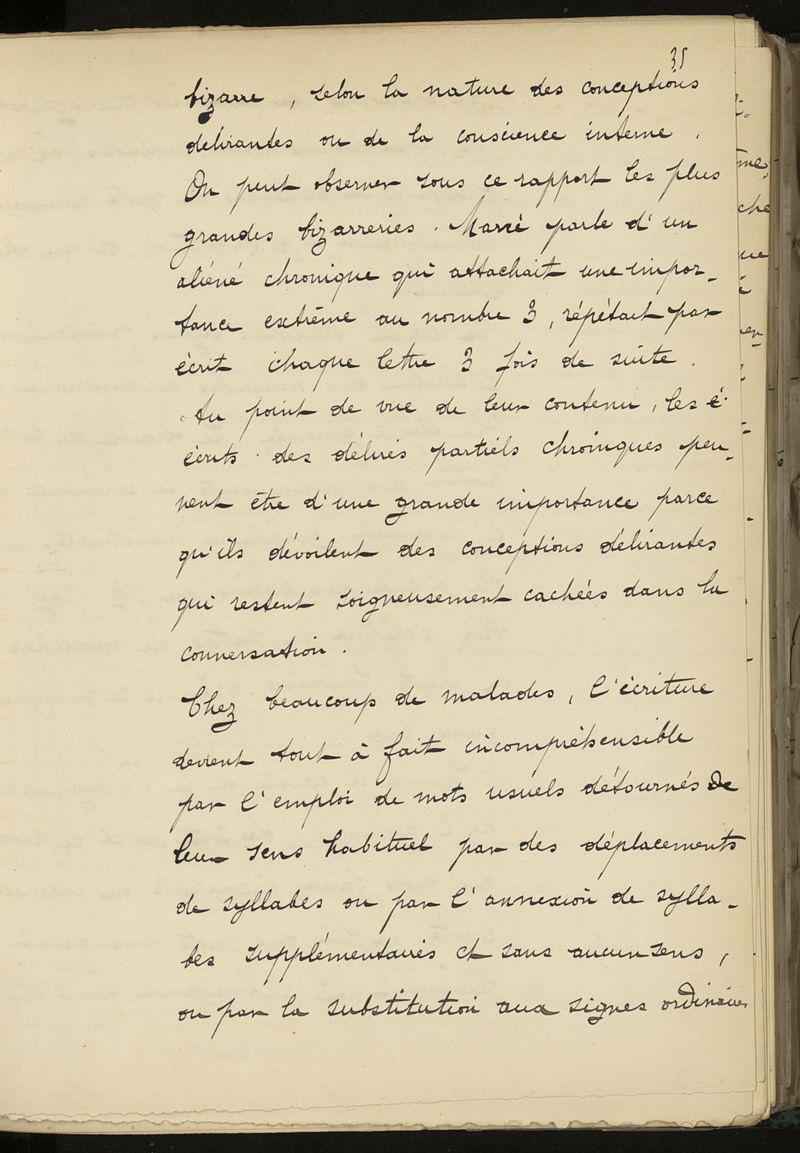 35
bizarre, selon la nature des conceptions
délirantes ou de la conscience interne.
On peut observer sous ce rapport les plus
grandes bizarreries. Marcé parle d'un
aliéné chronique qui attachait une impor-
tance extrême au nombre 3, répétait par
écrit chaque lettre 3 fois de suite.
Au point de vue de leur contenu, les é
écrits des délires partiels chroniques peu-
vent être d'une grande importance parce
qu'ils dévoilent des conceptions délirantes
qui restent soigneusement cachées dans la
conversation.
Chez beaucoup de malades, l'écriture
devient tout à fait incompréhensible
par l'emploi de mots usuels détournés de
leur sens habituel par des déplacements
de syllabes ou par l'annexion de sylla-
bes supplémentaires et sans aucun sens,
ou par la substitution aux signes ordinaires